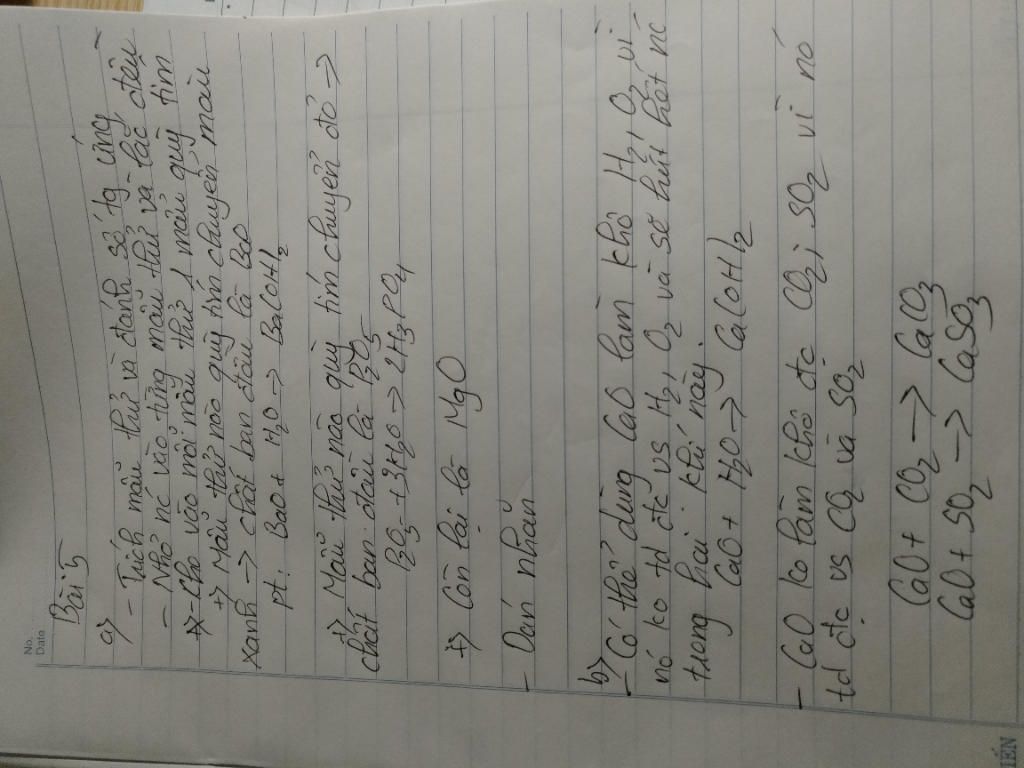 No.
Date
Bài 5
a) - Tích mẫu thử và đánh số tg ứng
- Nhỏ nc vào từng mẫu thử và lắc đều
- Cho vào mỗi mẫu thử 1 mẩu quỳ tím
+) Mẫu thử nào quỳ tím chuyển màu
xanh -> chất ban đầu là BaO
Pt: BaO + H2O -> Ba(OH)2
+) Mẫu thử nào quỳ tím chuyển đỏ ->
chất ban đầu là P2O5
P2O5 + 3H2O -> 2H3PO4
+) Còn lại là MgO
- Dán nhãn
b)
- Có thể dùng CaO làm khô H2, O2 vì
nó ko td đc vs H2, O2 và sẽ hút hết nc
trong hai khí này.
CaO + H2O -> Ca(OH)2
- CaO ko làm khô đc CO2, SO2 vì nó
td đc vs CO2 và SO2
CaO + CO2 -> CaCO3
CaO + SO2 -> CaSO3